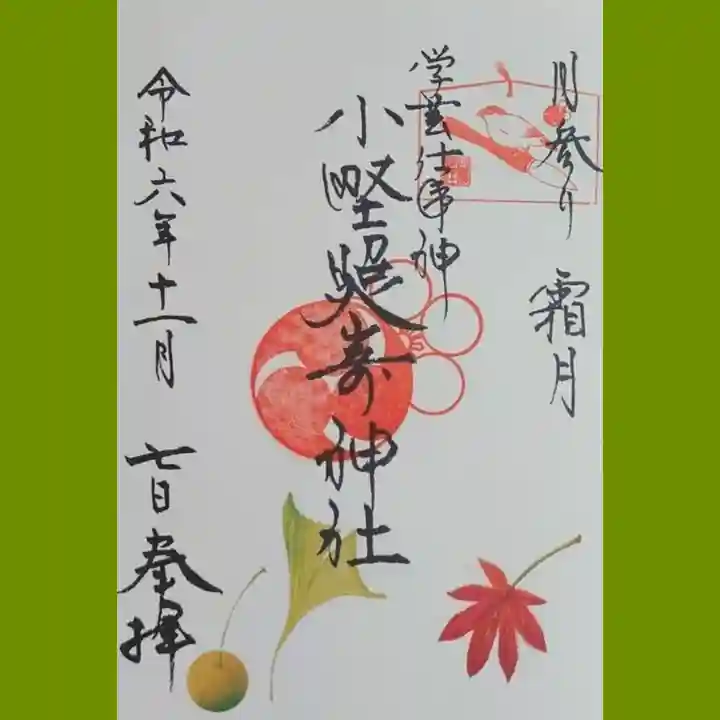 月参り 霜月
学芸仕事神
小野照嵜神社
令和六年十一月
七日 奉拝